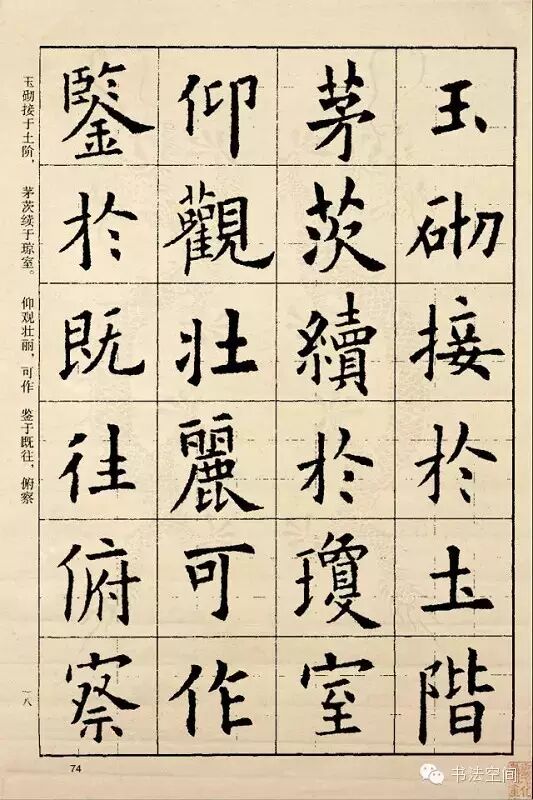 玉砌接於土階
茅茨續於瓊室
仰觀壯麗可作
鑒於既往俯察
玉砌接于土阶，茅茨续于琼室。仰观壮丽，可作鉴于既往，俯察
一八
74
书法空间